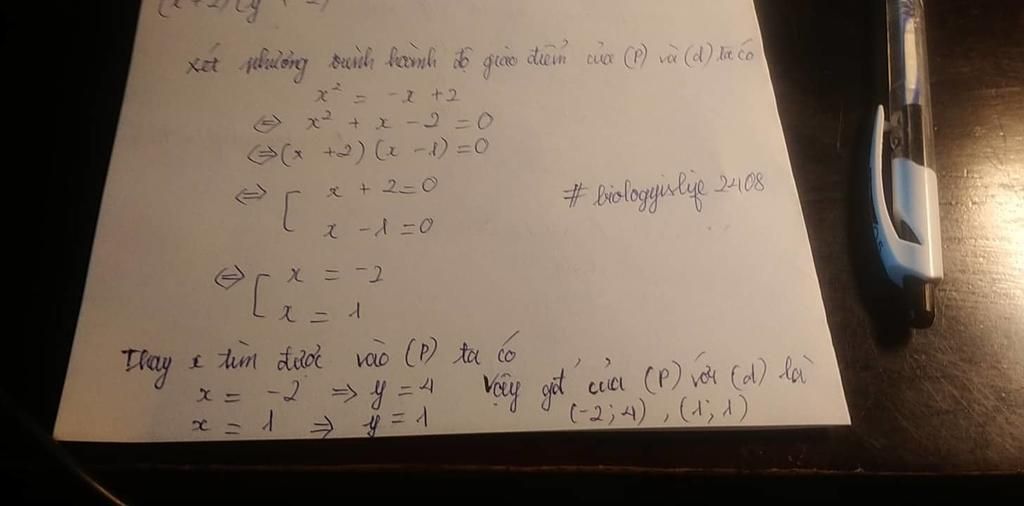 (x+2)(y
xét phương trình hoành độ giao điểm của (P) và (d) ta có
x² = -x + 2
⇔ x² + x - 2 = 0
⇔ (x + 2) (x - 1) = 0
⇔ [ x + 2 = 0
x - 1 = 0
# biologyislife 2408
⇔ [ x = -2
x = 1
Thay x tìm được vào (P) ta có
x = -2 ⇒ y = 4
x = 1 ⇒ y = 1
Vậy gđ của (P) với (d) là
(-2; 4) , (1; 1)